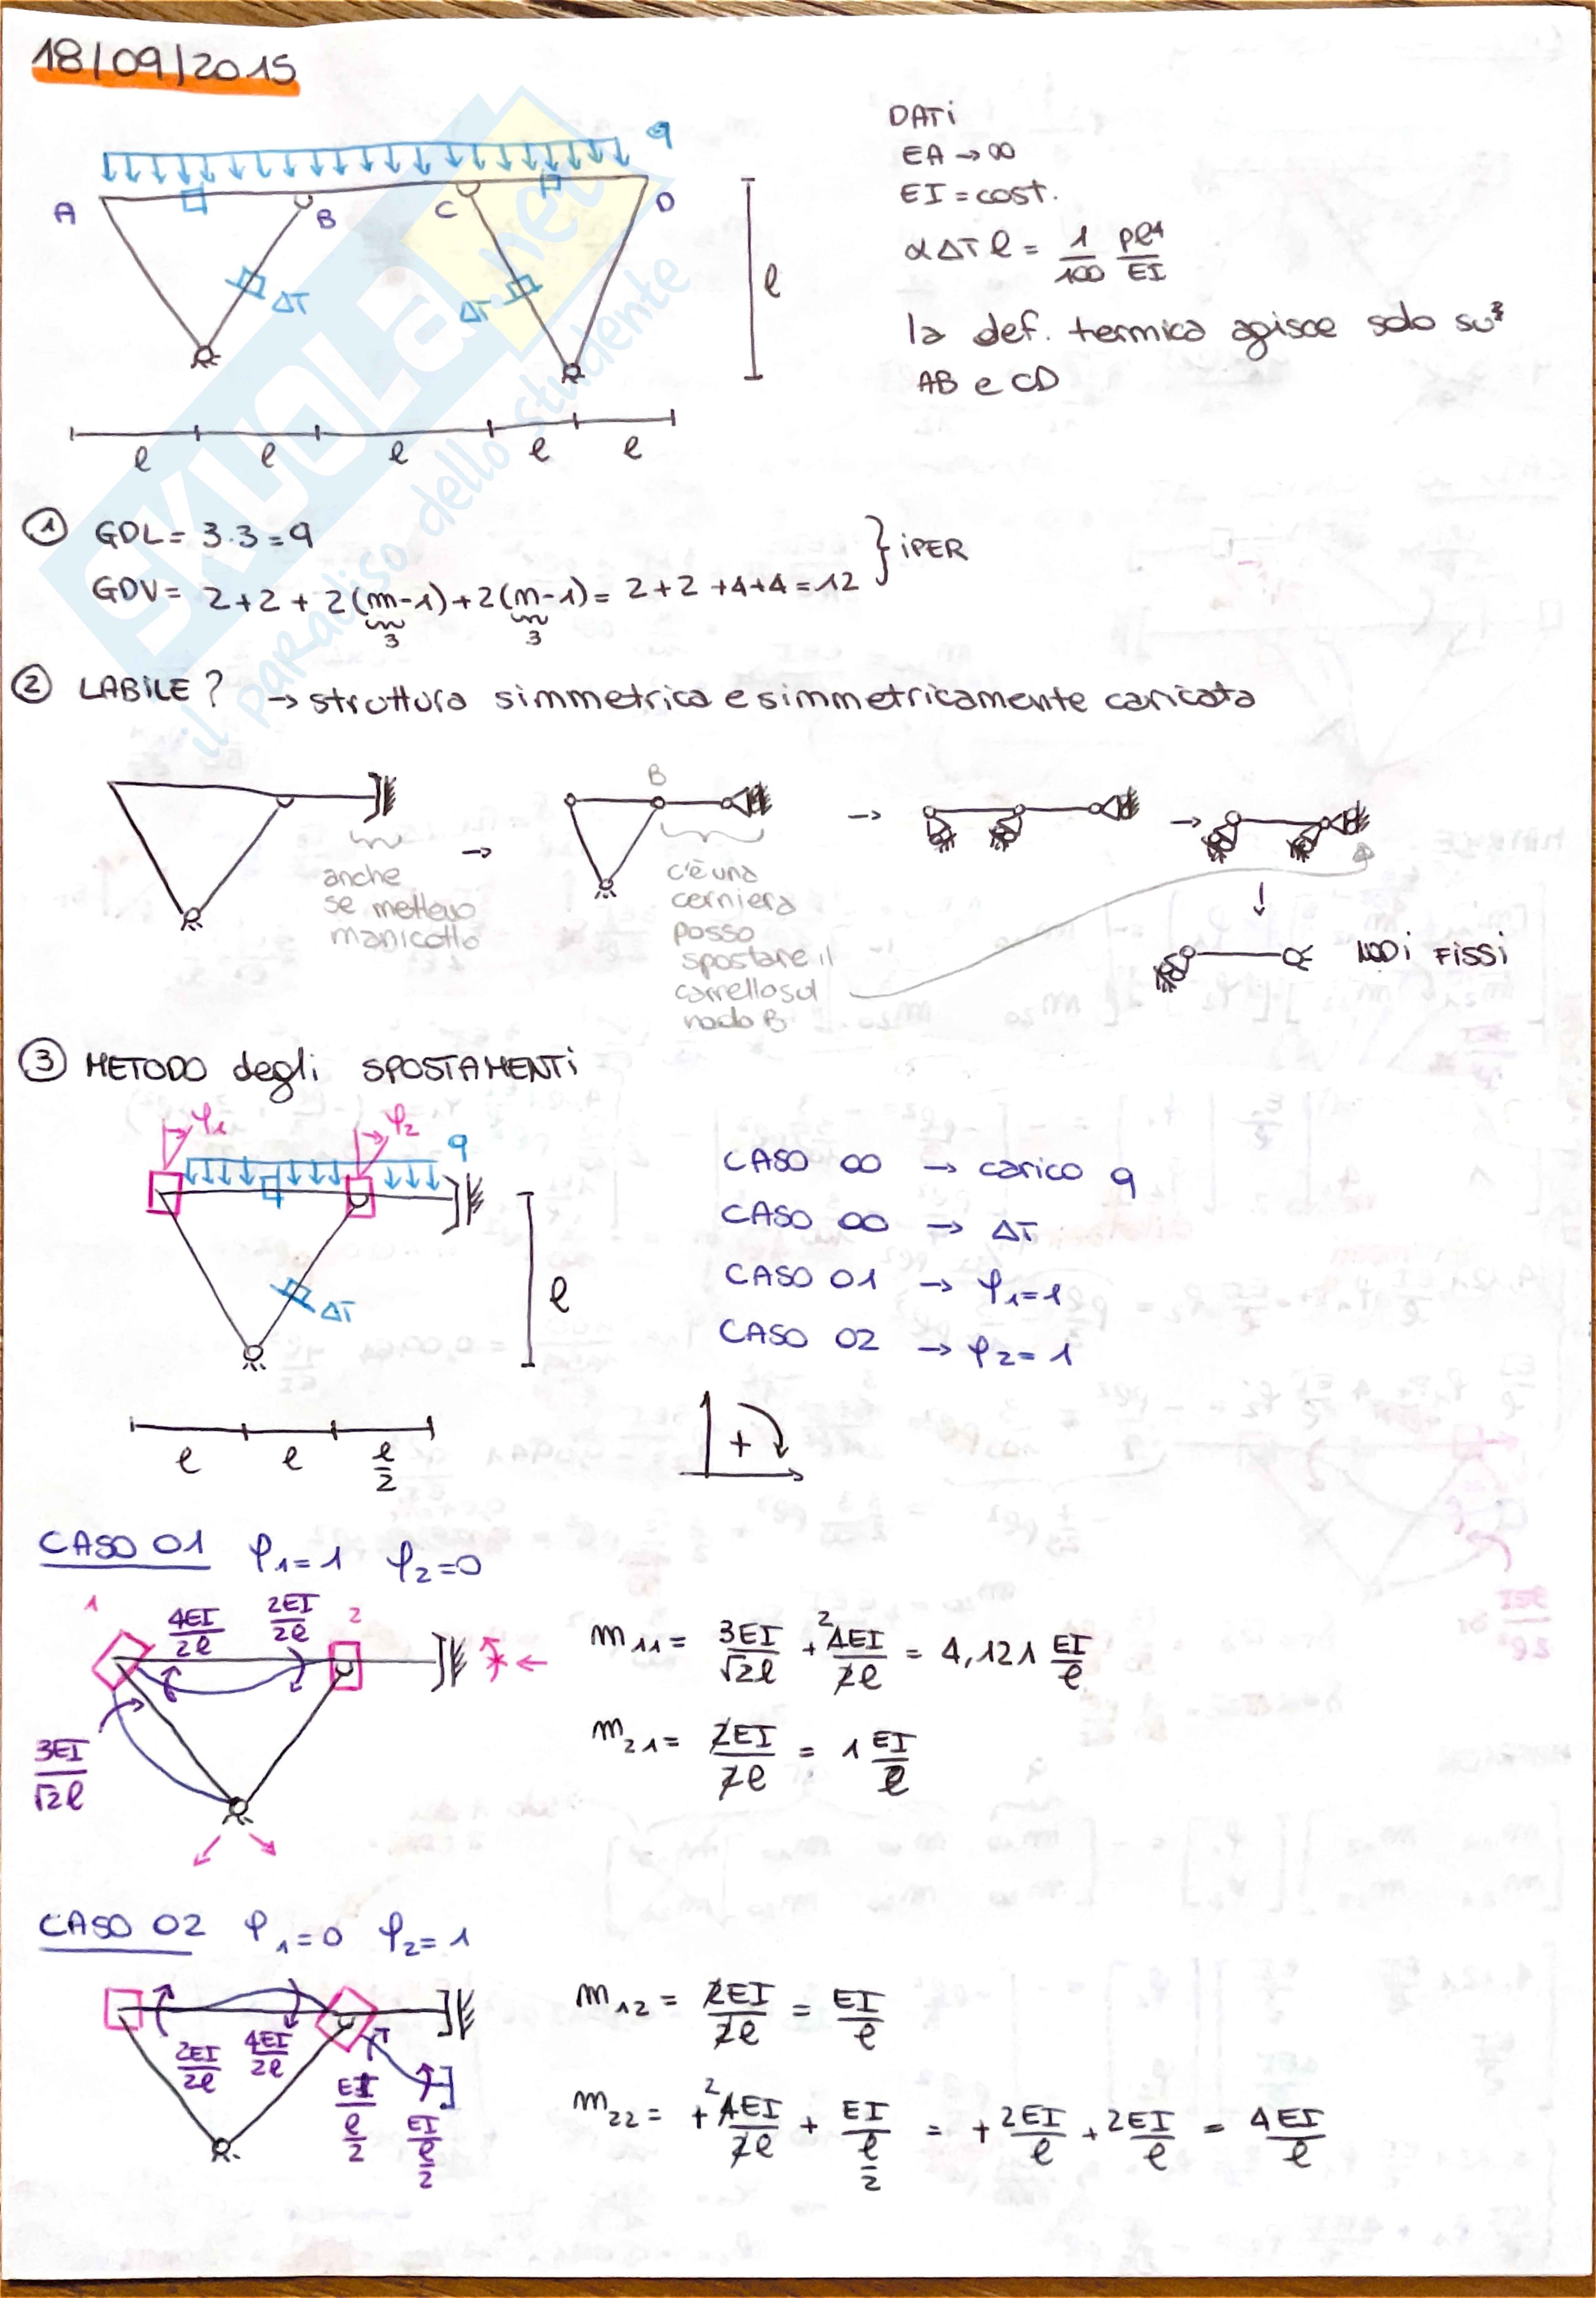 18/09/2015
q
A
B
C
D
ΔT
ΔT
l
l
l
l
l
l
DATi
EA → ∞
EI = cost.
αΔT l = 1/100 pl⁴/EI
la def. termica agisce solo su
AB e CD
SKUOLA.net
il paradiso dello studente
① GDL = 3·3 = 9
GDV = 2+2 + 2(m-1) + 2(m-1) = 2+2+4+4 = 12
3
3
} iPER
② LABiLE? → struttura simmetrica e simmetricamente caricata
anche
se mettevo
manicotto
→
B
c'è una
cerniera
posso
spostare il
carrello sul
nodo B.
→
→
↓
NODi FiSSi
③ METODO degli SPOSTAMENTi
φ1
φ2
q
ΔT
l
l
l
l/2
CASO 00 → carico q
CASO 00 → ΔT
CASO 01 → φ1=1
CASO 02 → φ2=1
+
CASO 01 φ1=1 φ2=0
1
4EI/2l
2EI/2l
2
3EI/√2l
m11 = 3EI/√2l + 4EI/2l = 4,121 EI/l
2
m21 = 2EI/2l = 1 EI/l
CASO 02 φ1=0 φ2=1
2EI/2l
4EI/2l
EI/l/2
EI/l/2
m12 = 2EI/2l = EI/l
m22 = +4EI/2l + EI/l/2 = +2EI/l + 2EI/l = 4EI/l
2